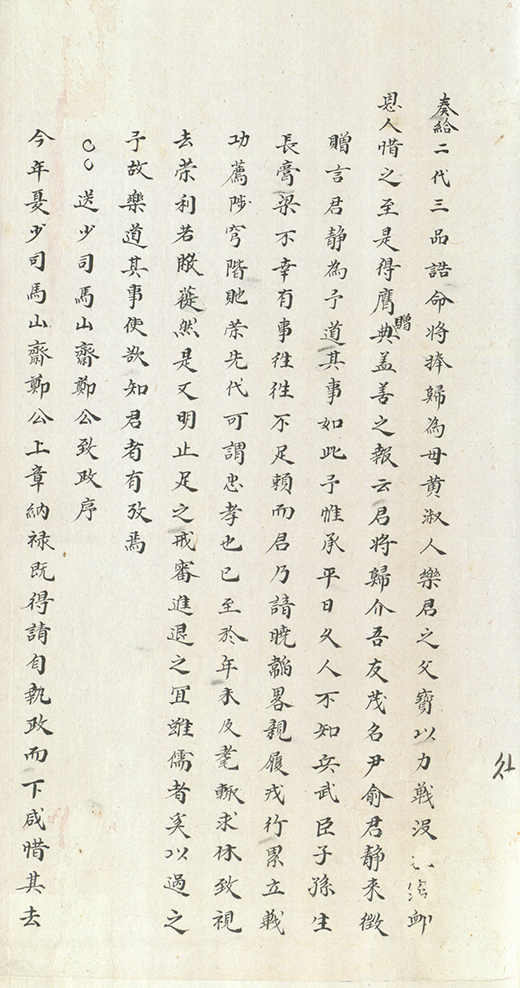 奏給二代三品誥命将捧歸為母黄淑人樂君之父寳以力戰没 卹
恩人惜之至是得膺贈典盖善之報云君将歸介吾友茂名尹俞君静来徴
贈言君静為予道其事如此予惟承平日久人不知兵武臣子孫生
長膏粱不幸有事徃徃不足頼而君乃諳暁韜畧親履戎行累立戰
功薦陟穹階貤荣先代可謂忠孝也已至於年未及耄輙求休致視
去荣利若脫蓰然是又明止足之戒審進退之宜雖儒者奚以過之
予故樂道其事使欲知君者有攷焉
○○送少司馬山齋鄭公致政序
今年夏少司馬山齋鄭公上章納禄既得請自執政而下咸惜其去